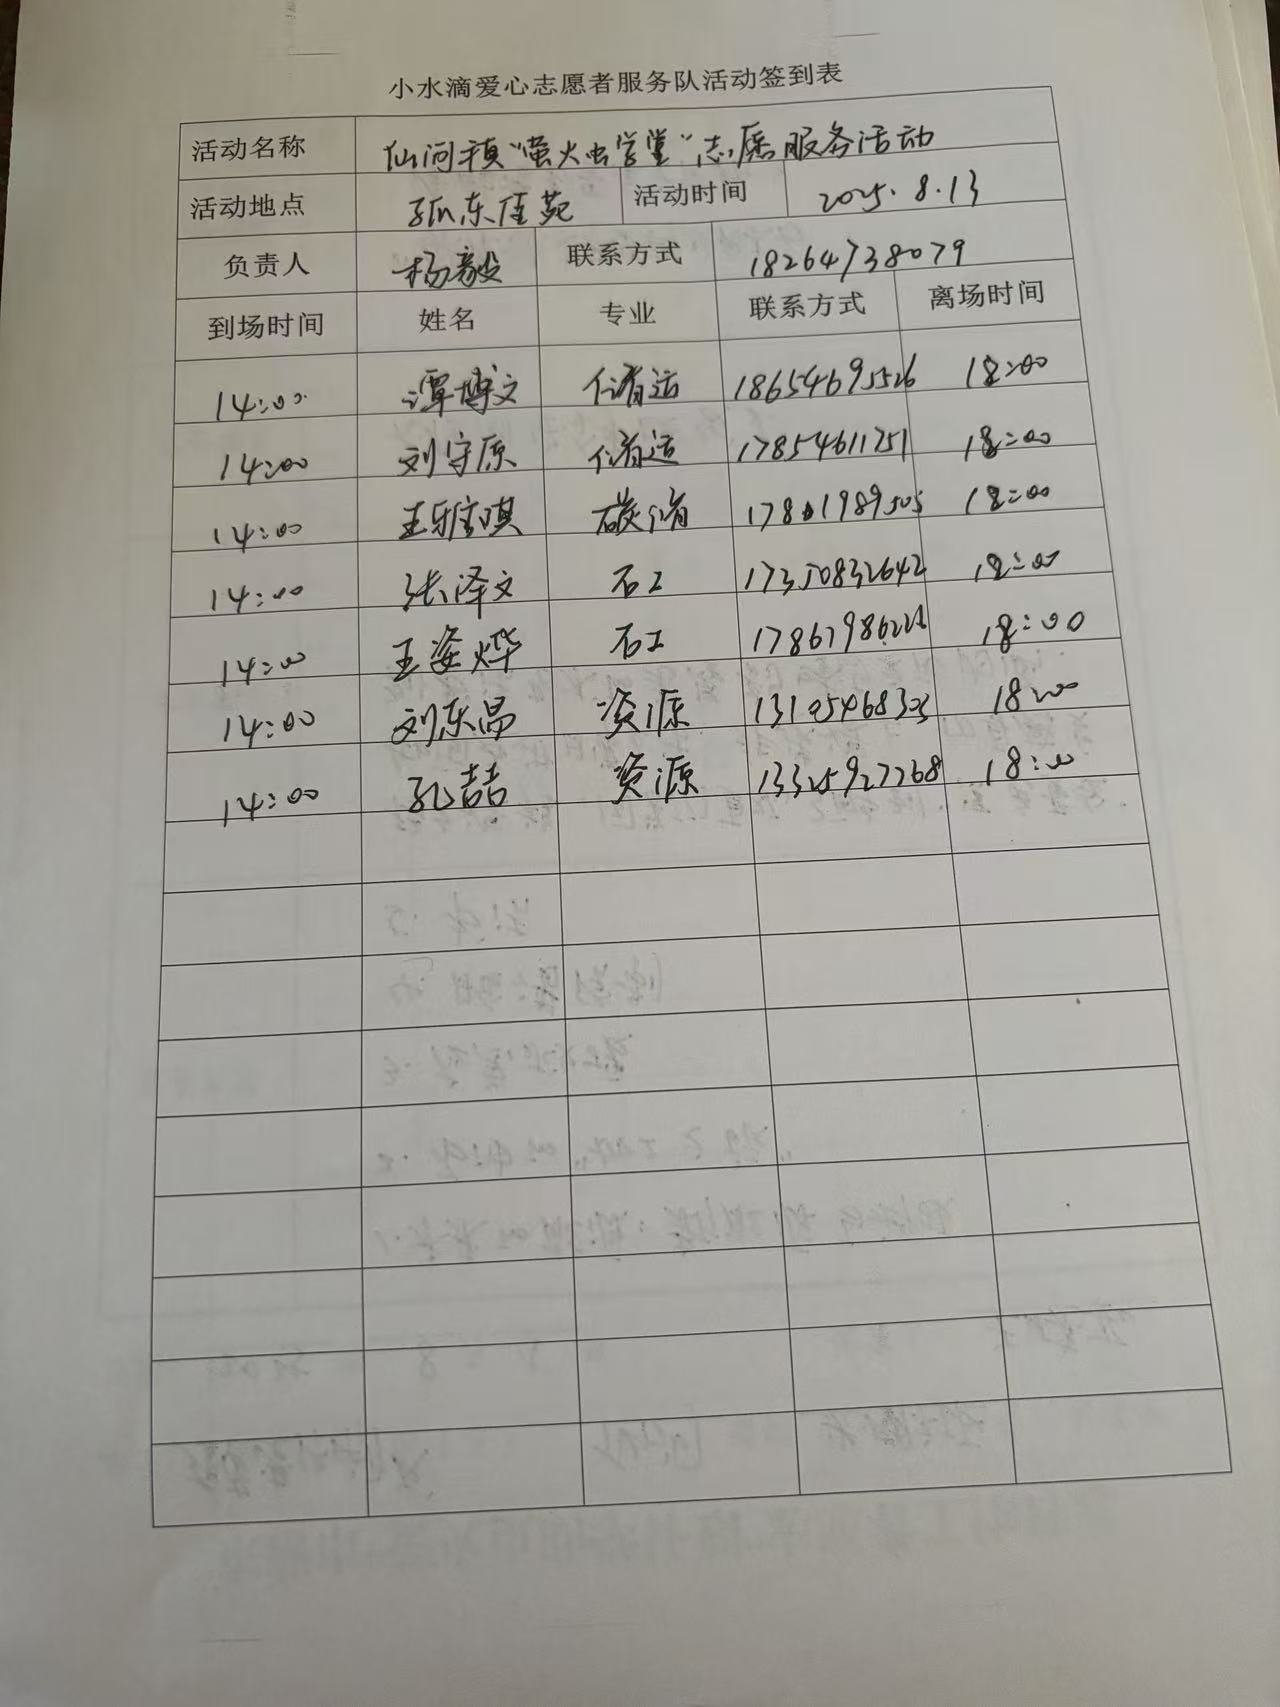 小水滴爱心志愿者服务队活动签到表
活动名称 仙河镇“萤火虫学堂”志愿服务活动
活动地点 孤东佳苑 活动时间 2025.8.13
负责人 杨毅 联系方式 18264738079
到场时间 姓名 专业 联系方式 离场时间
14:00 谭博文 储运 18654695526 18:00
14:00 刘守原 储运 17854611751 18:00
14:00 王乐琪 碳储 18:00
14:00 张泽文 石工 17350832642 18:00
14:00 王姿烨 石工 18:00
14:00 刘东昌 资源 18:00
14:00 孔喆 资源 13325927268 18:00